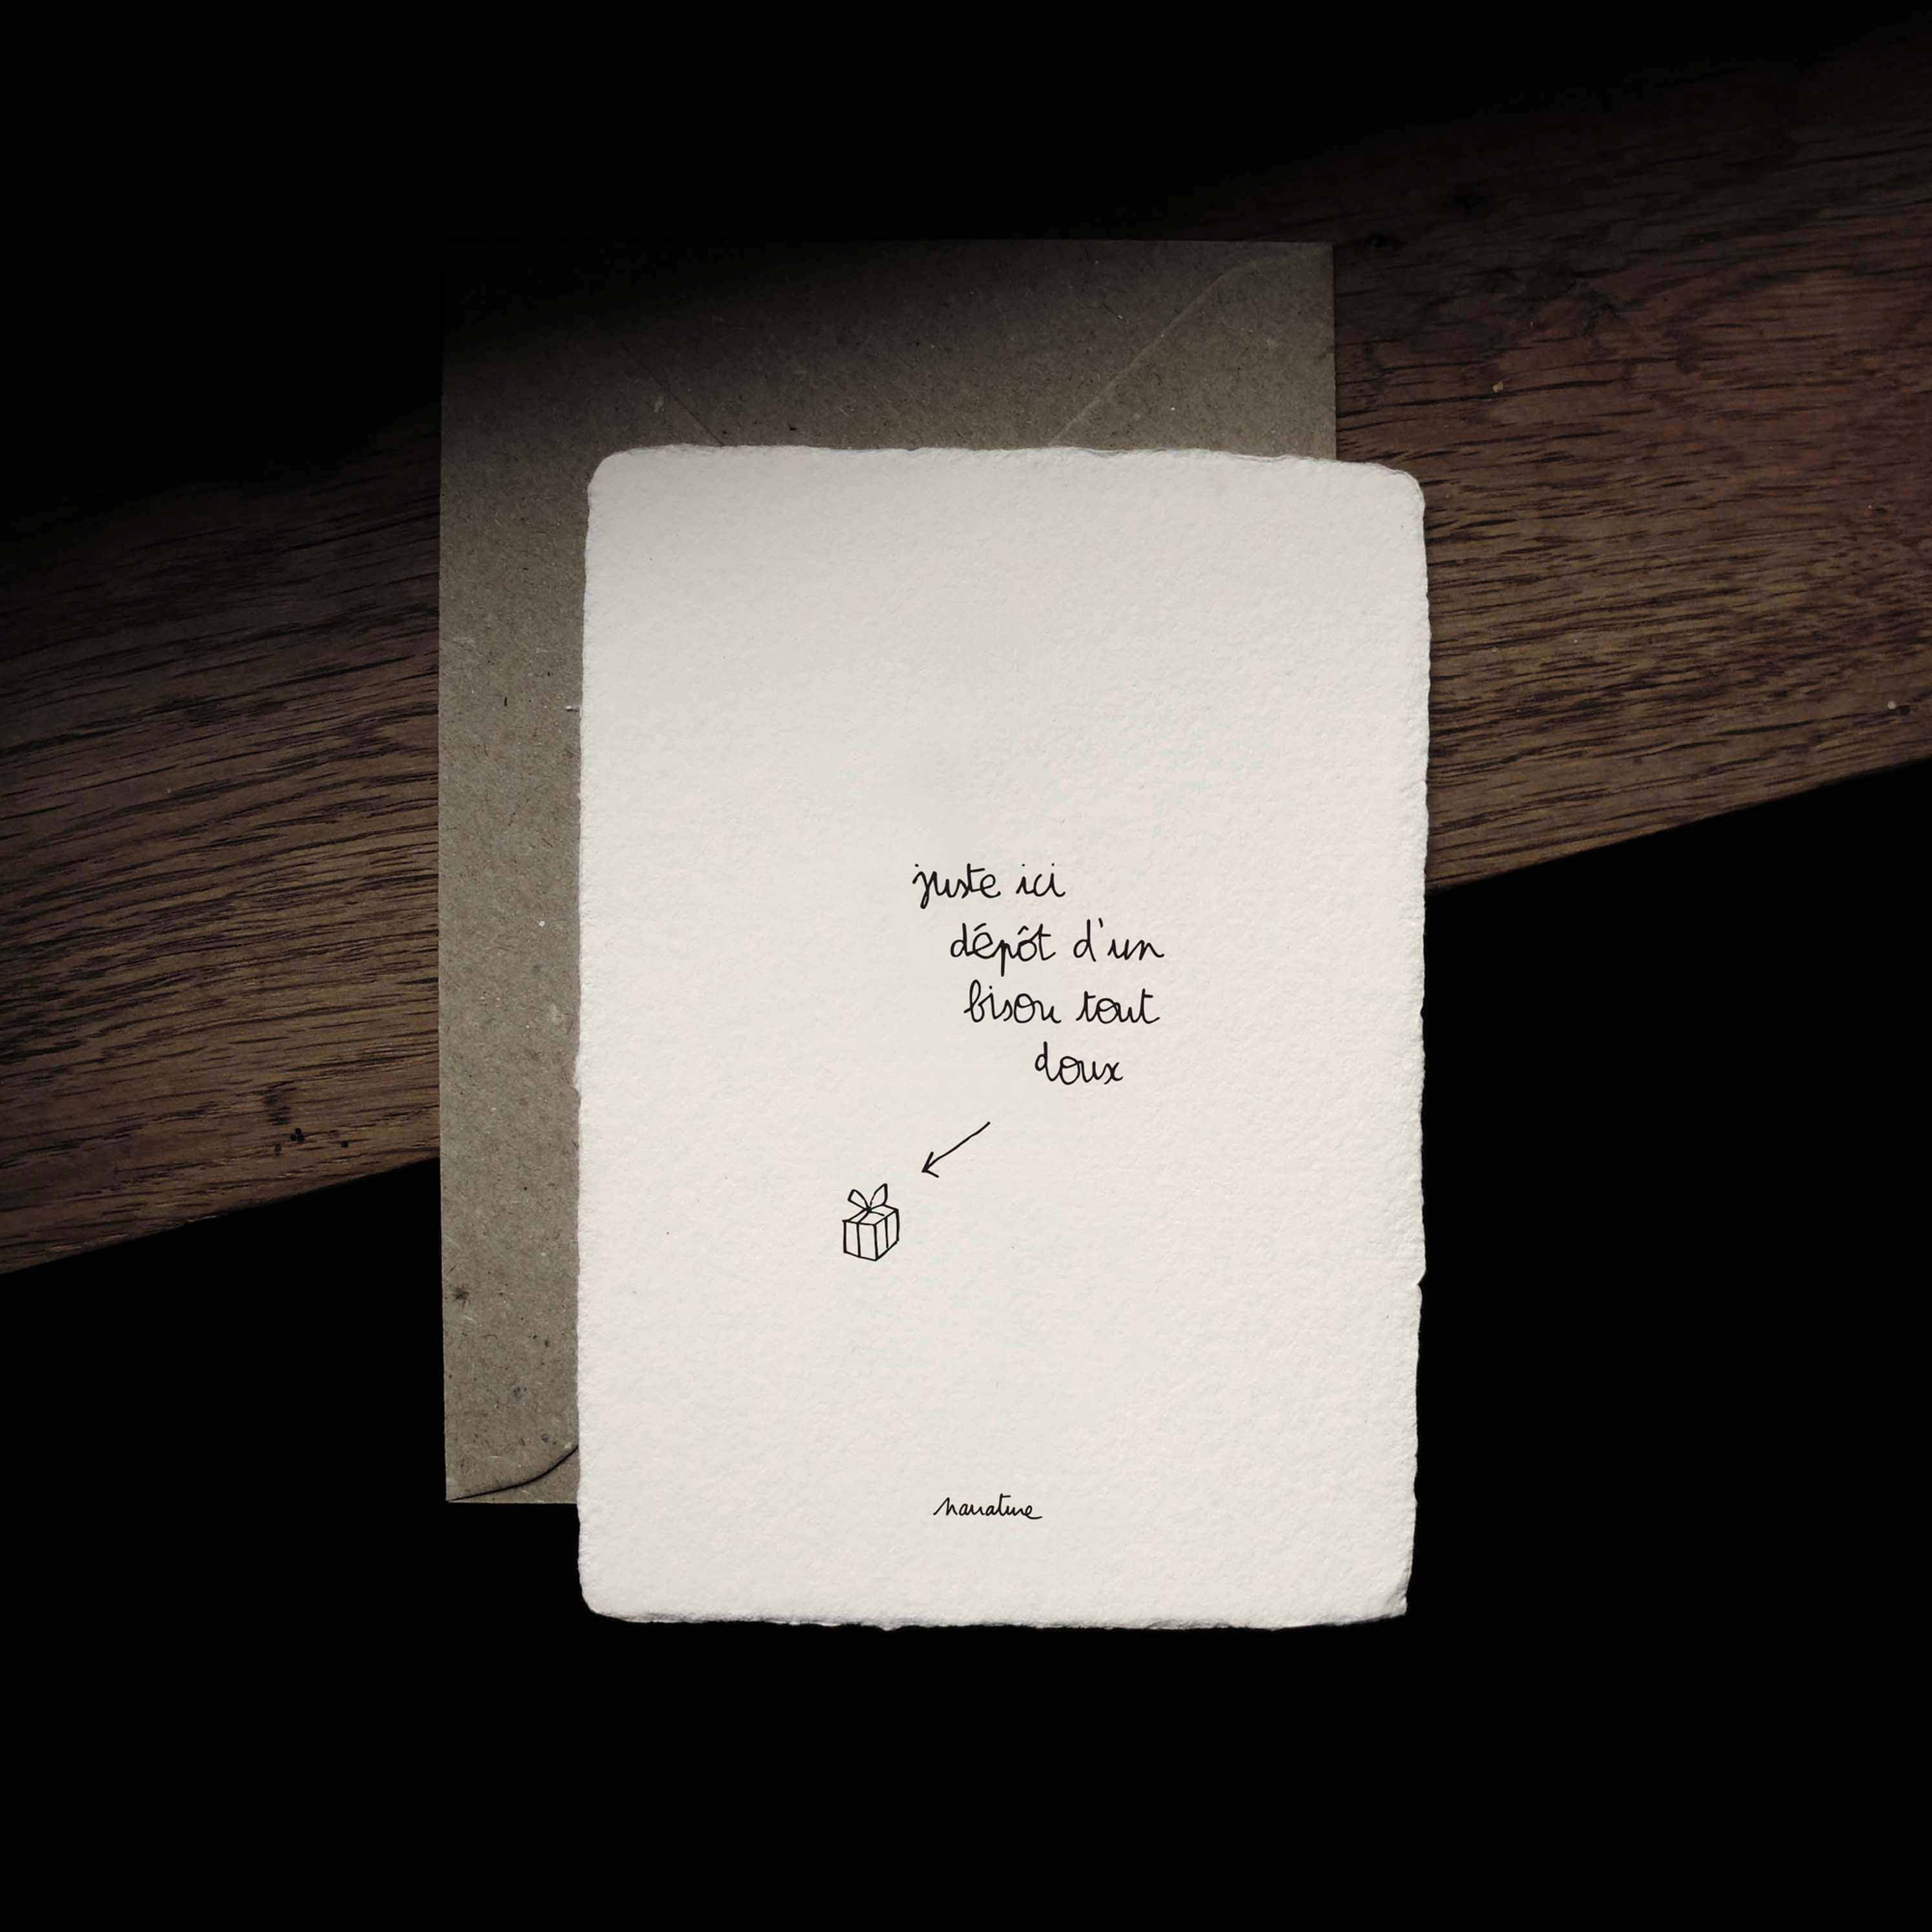 juste ici
dépôt d'un
bisou tout
doux
narrature